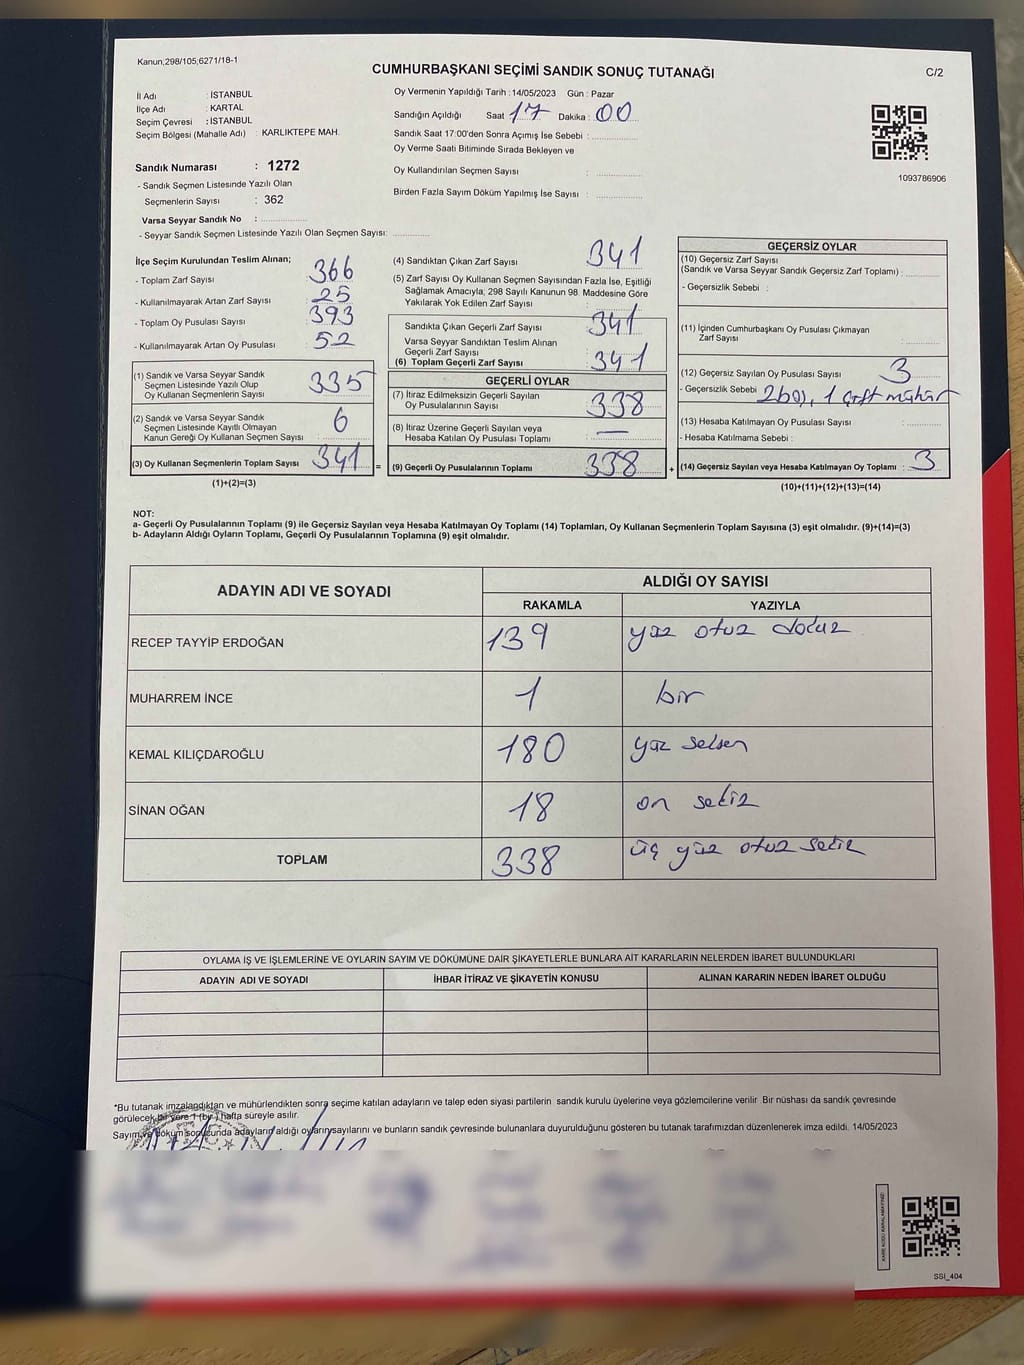 Kanun;298/105,6271/18-1
CUMHURBAŞKANI SEÇİMİ SANDIK SONUÇ TUTANAĞI
C/2
İl Adı : İSTANBUL
İlçe Adı : KARTAL
Seçim Çevresi : İSTANBUL
Seçim Bölgesi (Mahalle Adı) : KARLIKTEPE MAH.
Sandık Numarası : 1272
- Sandık Seçmen Listesinde Yazılı Olan
Seçmenlerin Sayısı : 362
Varsa Seyyar Sandık No :
- Seyyar Sandık Seçmen Listesinde Yazılı Olan Seçmen Sayısı:
Oy Vermenin Yapıldığı Tarih :14/05/2023 Gün : Pazar
Sandığın Açıldığı Saat 17 Dakika : 00
Sandık Saat 17:00'den Sonra Açımış İse Sebebi :
Oy Verme Saati Bitiminde Sırada Bekleyen ve
Oy Kullandırılan Seçmen Sayısı :
Birden Fazla Sayım Döküm Yapılmış İse Sayısı :
1093786906
İlçe Seçim Kurulundan Teslim Alınan;
- Toplam Zarf Sayısı : 366
- Kullanılmayarak Artan Zarf Sayısı : 25
- Toplam Oy Pusulası Sayısı : 393
- Kullanılmayarak Artan Oy Pusulası : 52
(1) Sandık ve Varsa Seyyar Sandık
Seçmen Listesinde Yazılı Olup
Oy Kullanan Seçmenlerin Sayısı : 335
(2) Sandık ve Varsa Seyyar Sandık
Seçmen Listesinde Kayıtlı Olmayan
Kanun Gereği Oy Kullanan Seçmen Sayısı : 6
(3) Oy Kullanan Seçmenlerin Toplam Sayısı : 341
(1)+(2)=(3)
=
(4) Sandıktan Çıkan Zarf Sayısı : 341
(5) Zarf Sayısı Oy Kullanan Seçmen Sayısından Fazla İse, Eşitliği
Sağlamak Amacıyla, 298 Sayılı Kanunun 98. Maddesine Göre
Yakılarak Yok Edilen Zarf Sayısı :
Sandıkta Çıkan Geçerli Zarf Sayısı : 341
Varsa Seyyar Sandıktan Teslim Alınan
Geçerli Zarf Sayısı :
(6) Toplam Geçerli Zarf Sayısı : 341
GEÇERLİ OYLAR
(7) İtiraz Edilmeksizin Geçerli Sayılan
Oy Pusulalarının Sayısı : 338
(8) İtiraz Üzerine Geçerli Sayılan veya
Hesaba Katılan Oy Pusulası Toplamı : —
(9) Geçerli Oy Pusulalarının Toplamı : 338
+
GEÇERSİZ OYLAR
(10) Geçersiz Zarf Sayısı
(Sandık ve Varsa Seyyar Sandık Geçersiz Zarf Toplamı) :
- Geçersizlik Sebebi :
(11) İçinden Cumhurbaşkanı Oy Pusulası Çıkmayan
Zarf Sayısı :
(12) Geçersiz Sayılan Oy Pusulası Sayısı : 3
- Geçersizlik Sebebi : 2boş, 1 çift mühür
(13) Hesaba Katılmayan Oy Pusulası Sayısı :
- Hesaba Katılmama Sebebi :
(14) Geçersiz Sayılan veya Hesaba Katılmayan Oy Toplamı : 3
(10)+(11)+(12)+(13)=(14)
NOT:
a- Geçerli Oy Pusulalarının Toplamı (9) ile Geçersiz Sayılan veya Hesaba Katılmayan Oy Toplamı (14) Toplamları, Oy Kullanan Seçmenlerin Toplam Sayısına (3) eşit olmalıdır. (9)+(14)=(3)
b- Adayların Aldığı Oyların Toplamı, Geçerli Oy Pusulalarının Toplamına (9) eşit olmalıdır.
ADAYIN ADI VE SOYADI ALDIĞI OY SAYISI
RAKAMLA YAZIYLA
RECEP TAYYİP ERDOĞAN 139 yüz otuz dokuz
MUHARREM İNCE 1 bir
KEMAL KILIÇDAROĞLU 180 yüz seksen
SİNAN OĞAN 18 on sekiz
TOPLAM 338 üç yüz otuz sekiz
OYLAMA İŞ VE İŞLEMLERİNE VE OYLARIN SAYIM VE DÖKÜMÜNE DAİR ŞİKAYETLERLE BUNLARA AİT KARARLARIN NELERDEN İBARET BULUNDUKLARI
ADAYIN ADI VE SOYADI İHBAR İTİRAZ VE ŞİKAYETİN KONUSU ALINAN KARARIN NEDEN İBARET OLDUĞU
*Bu tutanak imzalandıktan ve mühürlendikten sonra seçime katılan adayların ve talep eden siyasi partilerin sandık kurulu üyelerine veya gözlemcilerine verilir .Bir nüshası da sandık çevresinde
görülecek bir yere 1 (bir ) hafta süreyle asılır.
Sayım ve döküm sonucunda adayların aldığı oyların sayılarını ve bunların sandık çevresinde bulunanlara duyurulduğunu gösteren bu tutanak tarafımızdan düzenlenerek imza edildi. 14/05/2023
SSİ_404